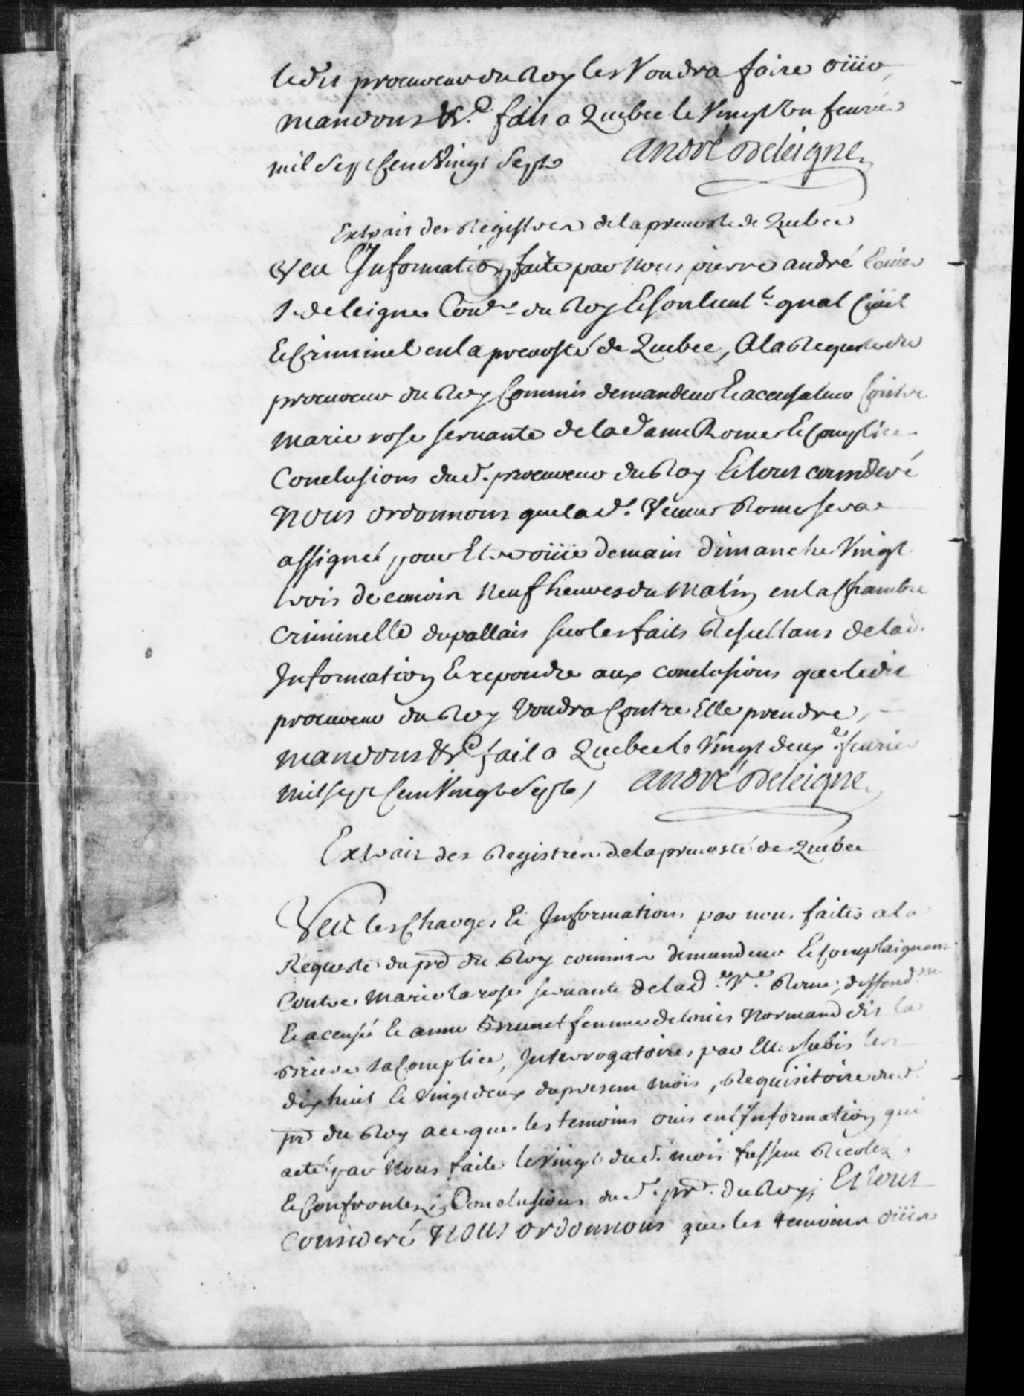 ledit procureur du Roy les Voudra faire oüir,
mandons &c. fait a Quebec le Vingt Un feuvrier
mil Sept Cent Vingt Sept André Deleigne
Extrait des Registres de la prevosté de Quebec
Veu l'Information faite par Nous pierre andré Ecuier
S. de leigne Conr. du Roy Et Son Lieutt. gnal Ciuil
Et Criminel en la prevosté de Quebec, A la Requeste du
procureur du Roy Commis demandeur Et accusateur Contre
Marie rose seruante de la d. anne Rome Et Complice
Conclusions dud. procureur du Roy Et tout consideré
Nous ordonnons que la d. Veuve Rome sera
assignée pour Etre oüie demain dimanche Vingt
trois de ce mois Neuf heures du Matin en la Chambre
Criminelle du pallais sur les faits Resultans de lad.
Information Et repondre aux conclusions que ledit
procureur du Roy Voudra Contre Elle prendre,
Mandons &c. fait a Quebec le Vingt deux.e feurier
Mil sept Cent Vingt Sept André Deleigne
Extrait des Registres de la prevosté de Quebec
Veu les Charges Et Informations par nous faites a la
Requeste du pr. du Roy commis demandeur Et Complaignant
Contre Marie la rose seruante de la d.e V.e Rome, deffend.
Et accusée Et anne Brunet femme de Louis Normand dit la
Briere sa Complice, Interrogatoires par Elles subis les
dix huit Et Vingt deux du present mois, Requisitoire dud.
pr. du Roy a ce que les temoins ouis en l'Information qui
a eté par Nous faite le Vingt dud. mois fussent Recolés
Et Confrontez; Conclusions dud. pr. du Roy; Et tout
Consideré Nous ordonnons que les temoins oüis